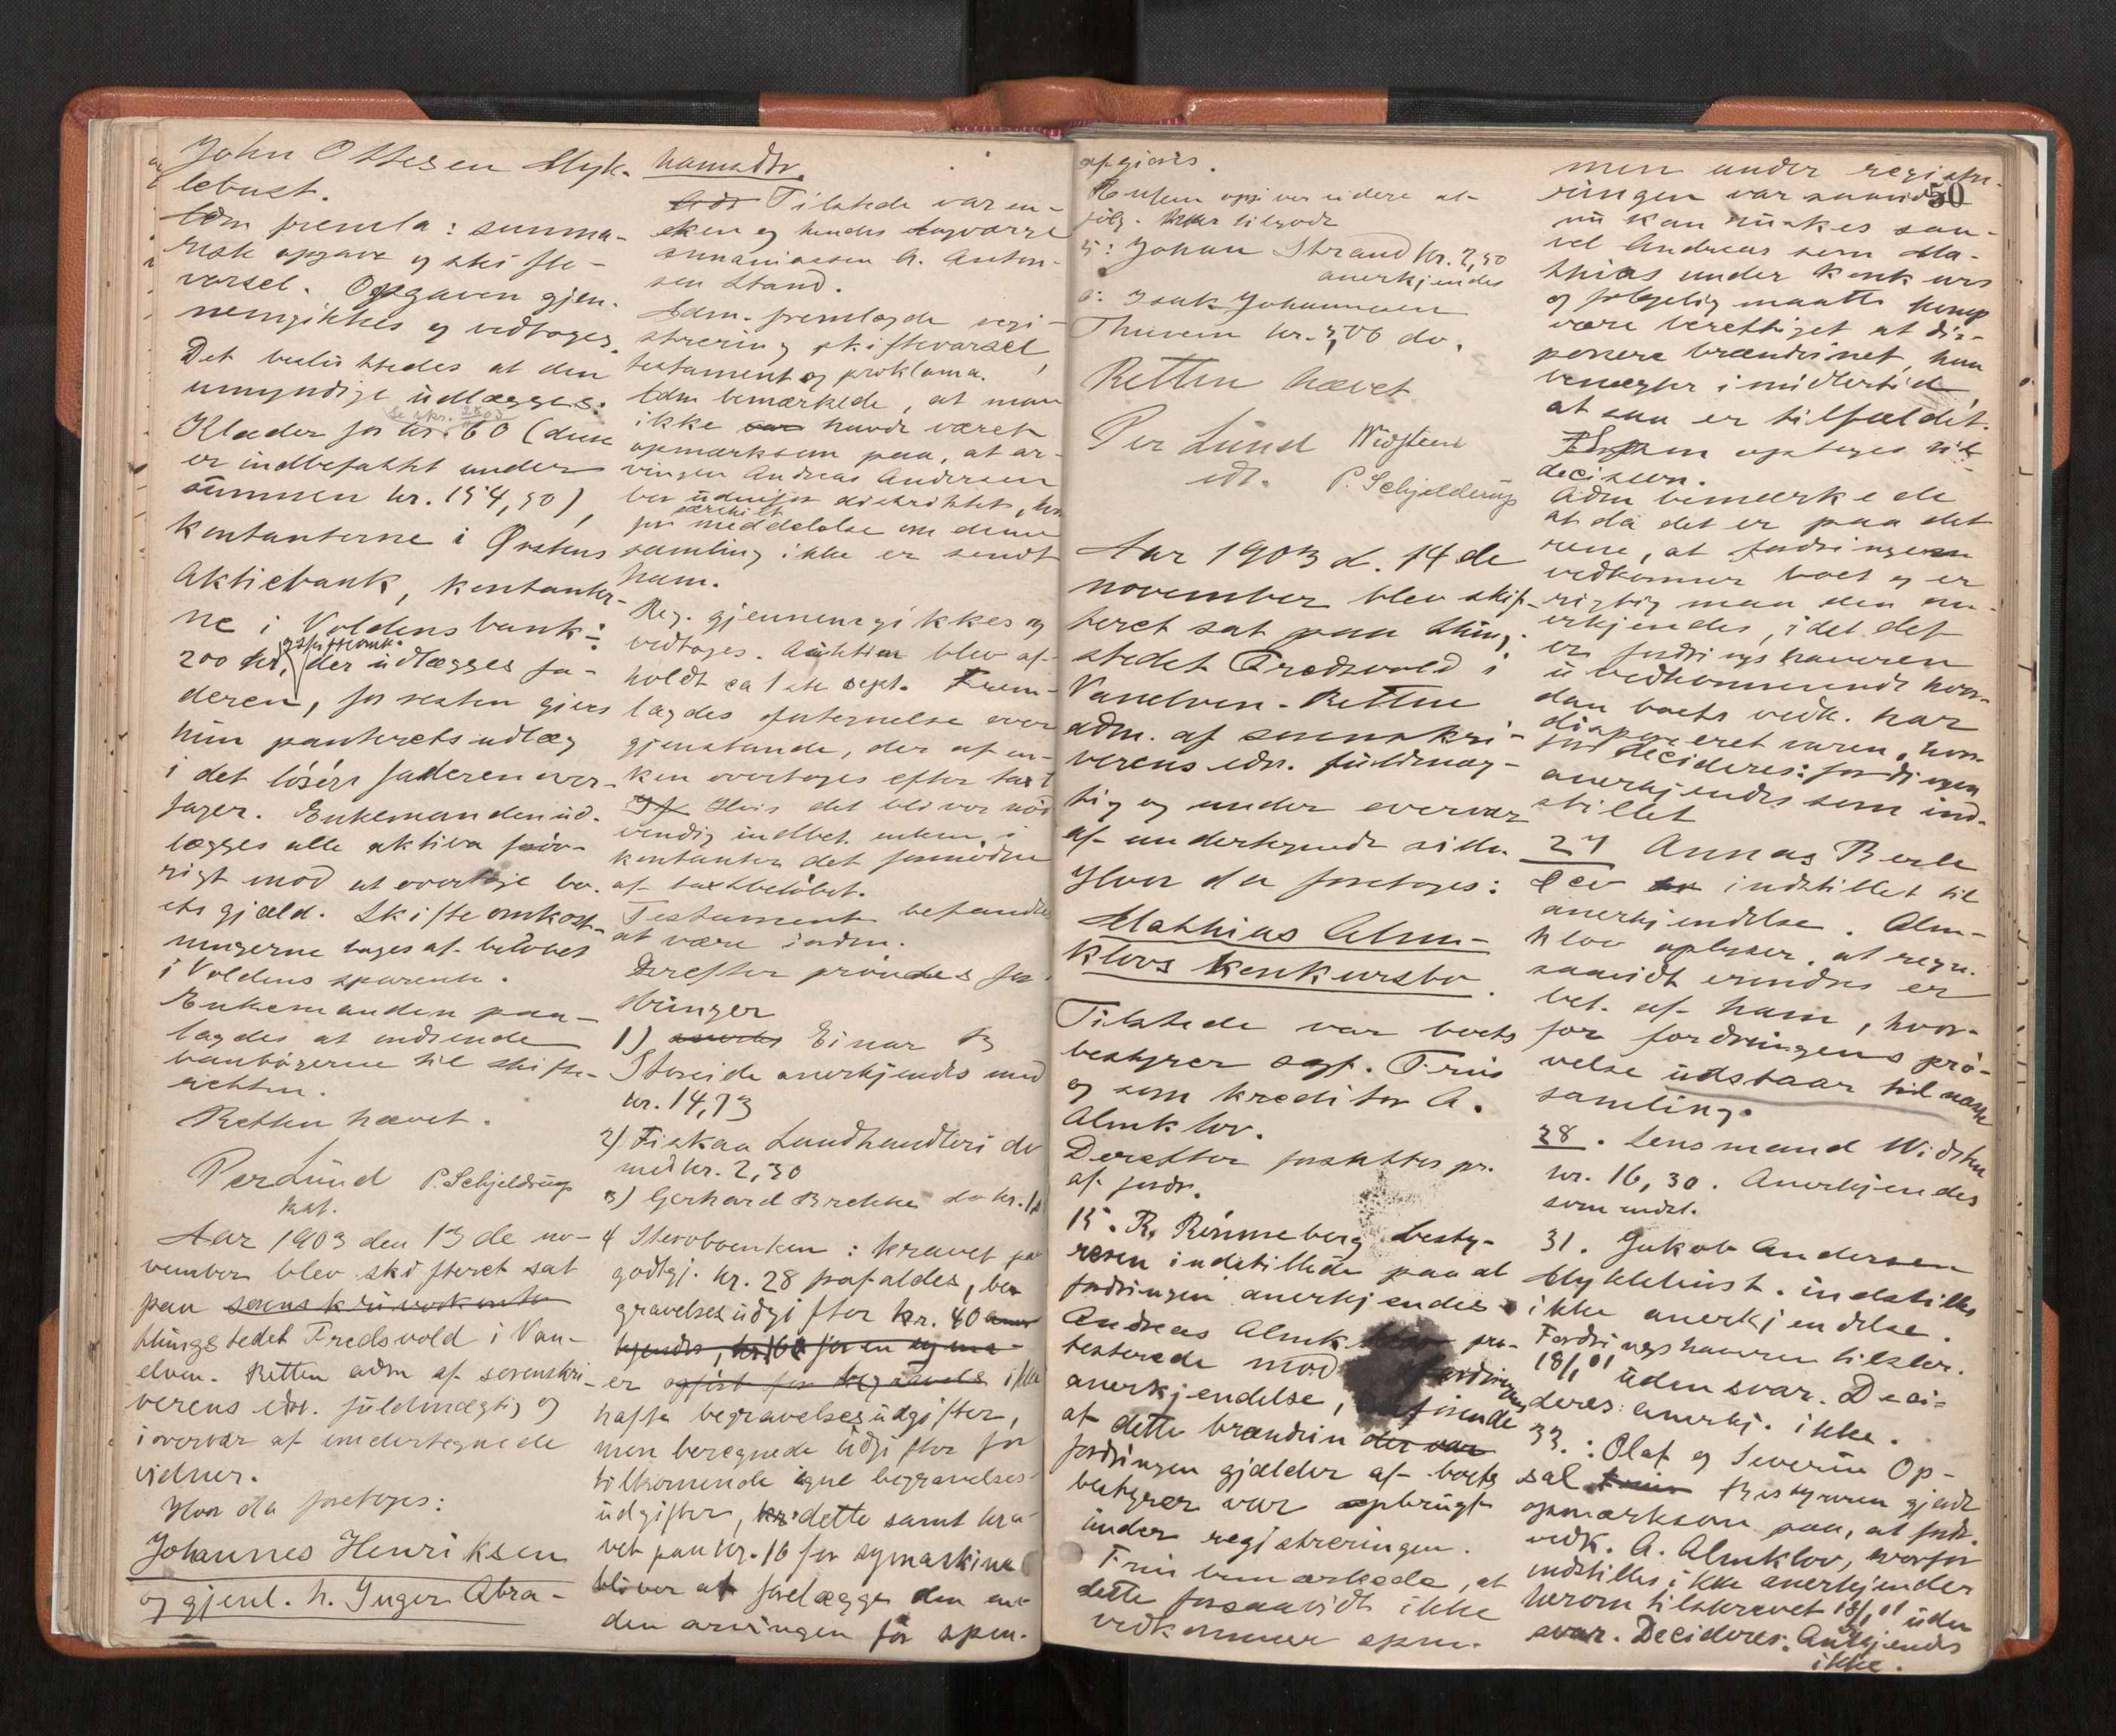 John Ottesen Myk-
lebust.
Adm fremla: summa-
risk opgave og skifte-
varsel. Opgaven gjen-
nemgikkes og vedtoges.
Det besluttedes at den
umyndige udlægges:
Klæder for kr. 60 (disse
er indbefattet under
summen kr. 154,50),
kontanterne i Ørstens
Aktiebank, kontanter-
ne i Voldens bank:
200 kr, der udlægges fa-
deren, for resten gives
hun panterets udlæg
i det løsøre faderen over-
tager. Enkemanden ud-
lægges alle aktiva føv-
rigt mod at overtage bo-
ets gjæld. Skifteomkost-
ningerne tages af beløbet
i Voldens spareb.
Enkemanden paa-
lagdes at indsende
bankbøgerne til skifte-
retten.
Retten hævet.
Per Lund P. Schjeldrup
kst.
Aar 1903 den 13de no-
vember blev skifteret sat
paa
thingstedet Fredsvold i Van-
elven. Retten adm af sorenskri-
verens edsv. fuldmægtig og
i overvær af undertegnede
vidner.
Hvor da foretoges:
Johannes Henriksen
og gjenl. h. Inger Abra-
hamsdtr.
Tilstede var en-
ken og hendes lagværge
A. Anton-
sen Stand.
Adm. fremlagde regi-
strering skiftevarsel,
testament og proklama.
Adm bemærkede, at man
ikke havde været
opmærksom paa, at ar-
vingen Andreas Andersen
bor udenfor distriktet, hvor-
for særskilt meddelelse om denne
samling ikke er sendt
ham.
Reg. gjennemgikkes og
vedtoges. Auktion blev af-
holdt ca 1ste sept. Frem-
lagdes fortegnelse over
gjenstande, der af en-
ken overtoges efter taxt
Hvis det bliver nød
vendig indbet. enken i
kontanter det fornødne
af taxtbeløbet.
Testament befandtes
at være i orden.
Derefter prøvedes for-
dringer
1) Einar B
Storeide anerkjendes med
kr. 14,73
2) Fiskaa Landhandleri do
med kr. 2,30
3) Gerhard Brekke do kr.
4 Stervboenken: kravet paa
godtgj. kr. 28 frafaldes, be-
gravelsesudgifter kr. 40
er ikke
hafte begravelsesudgifter,
men beregnede udgifter for
tilkommende egne begravelses-
udgifter, dette samt kra-
vet paa kr. 16 for symaskine
bliver at forelægge den en-
den arvingen før spm.
afgjøres.
Enken opgiver videre at
følg. har tilgode
5: Johan Strand kr. 2,50
anerkjendes
6: Isak Johannesen
Thuven kr. 3,00 do.
Retten hævet
Per Lund Widsteen
edt. P. Schjelderup
Aar 1903 d. 14de
november blev skif-
teret sat paa thing-
stedet Fredsvold i
Vanelven. Retten
adm. af sorenskri-
verens edsv. fuldmæg-
tig og under overvær
af undertegnede vidn.
Hvor da foretoges:
Mathias Alm-
kloves konkursbo.
Tilstede var boets
bestyrer sagf. Friis
og som kreditor A.
Almklov.
Derefter fortsattes pr.
af fordr.
15. R. Rønneberg. besty-
reren indstillede paa at
fordringen anerkjendes
Andreas Almk. pro-
testerede mod fordringens
anerkjendelse, anførende
at dette brændvin
fordringen gjælder af boets
bestyrer var opbrugt
under registreringen.
Friis bemærkede, at
dette forsaavidt ikke
vedkommer spm.
50
men under registre-
ringen var saavidt
nu kan huskes saa-
vel Andreas som Ma-
thias under konkurs
og følgelig maatte
være berettiget at dis-
ponere brændvinet, han
benægter imidlertid,
at saa er tilfældet.
Spm optages til
decision.
Adm bemærkede
at da det er paa det
rene, at fordringen
vedkommer boet og er
rigtig maa den an-
erkjendes, idet det
er fordringshaveren
uvedkommende hvor-
dan boets vedk. har
disponeret varen, hvor-
for decideres: fordringen
anerkjendes som ind-
stillet
27 Annas Berle
blev indstillet til
anerkjendelse. Alm-
klov oplyser, at regn.
saavidt erindres er
bet. af ham, hvor-
for fordringens prø-
velse udstaar til næste
samling.
28. Lensmand Widsteen
kr. 16,30. Anerkjendes
som indst.
31. Jakob Andersen
Myklebust. indstilles
ikke anerkjendelse.
Fordringshaveren tilskr.
18/1 01 uden svar. Deci-
deres: anerkj. ikke.
33.: Olaf og Severin Op-
sal Bestyreren gjorde
opmærksom paa, at fordr.
vedk. A. Almklov, hvorfor
indstilles ikke anerkjendes
herom tilskrevet 18/1 01 uden
svar. Decideres: Anerkjendes
ikke.